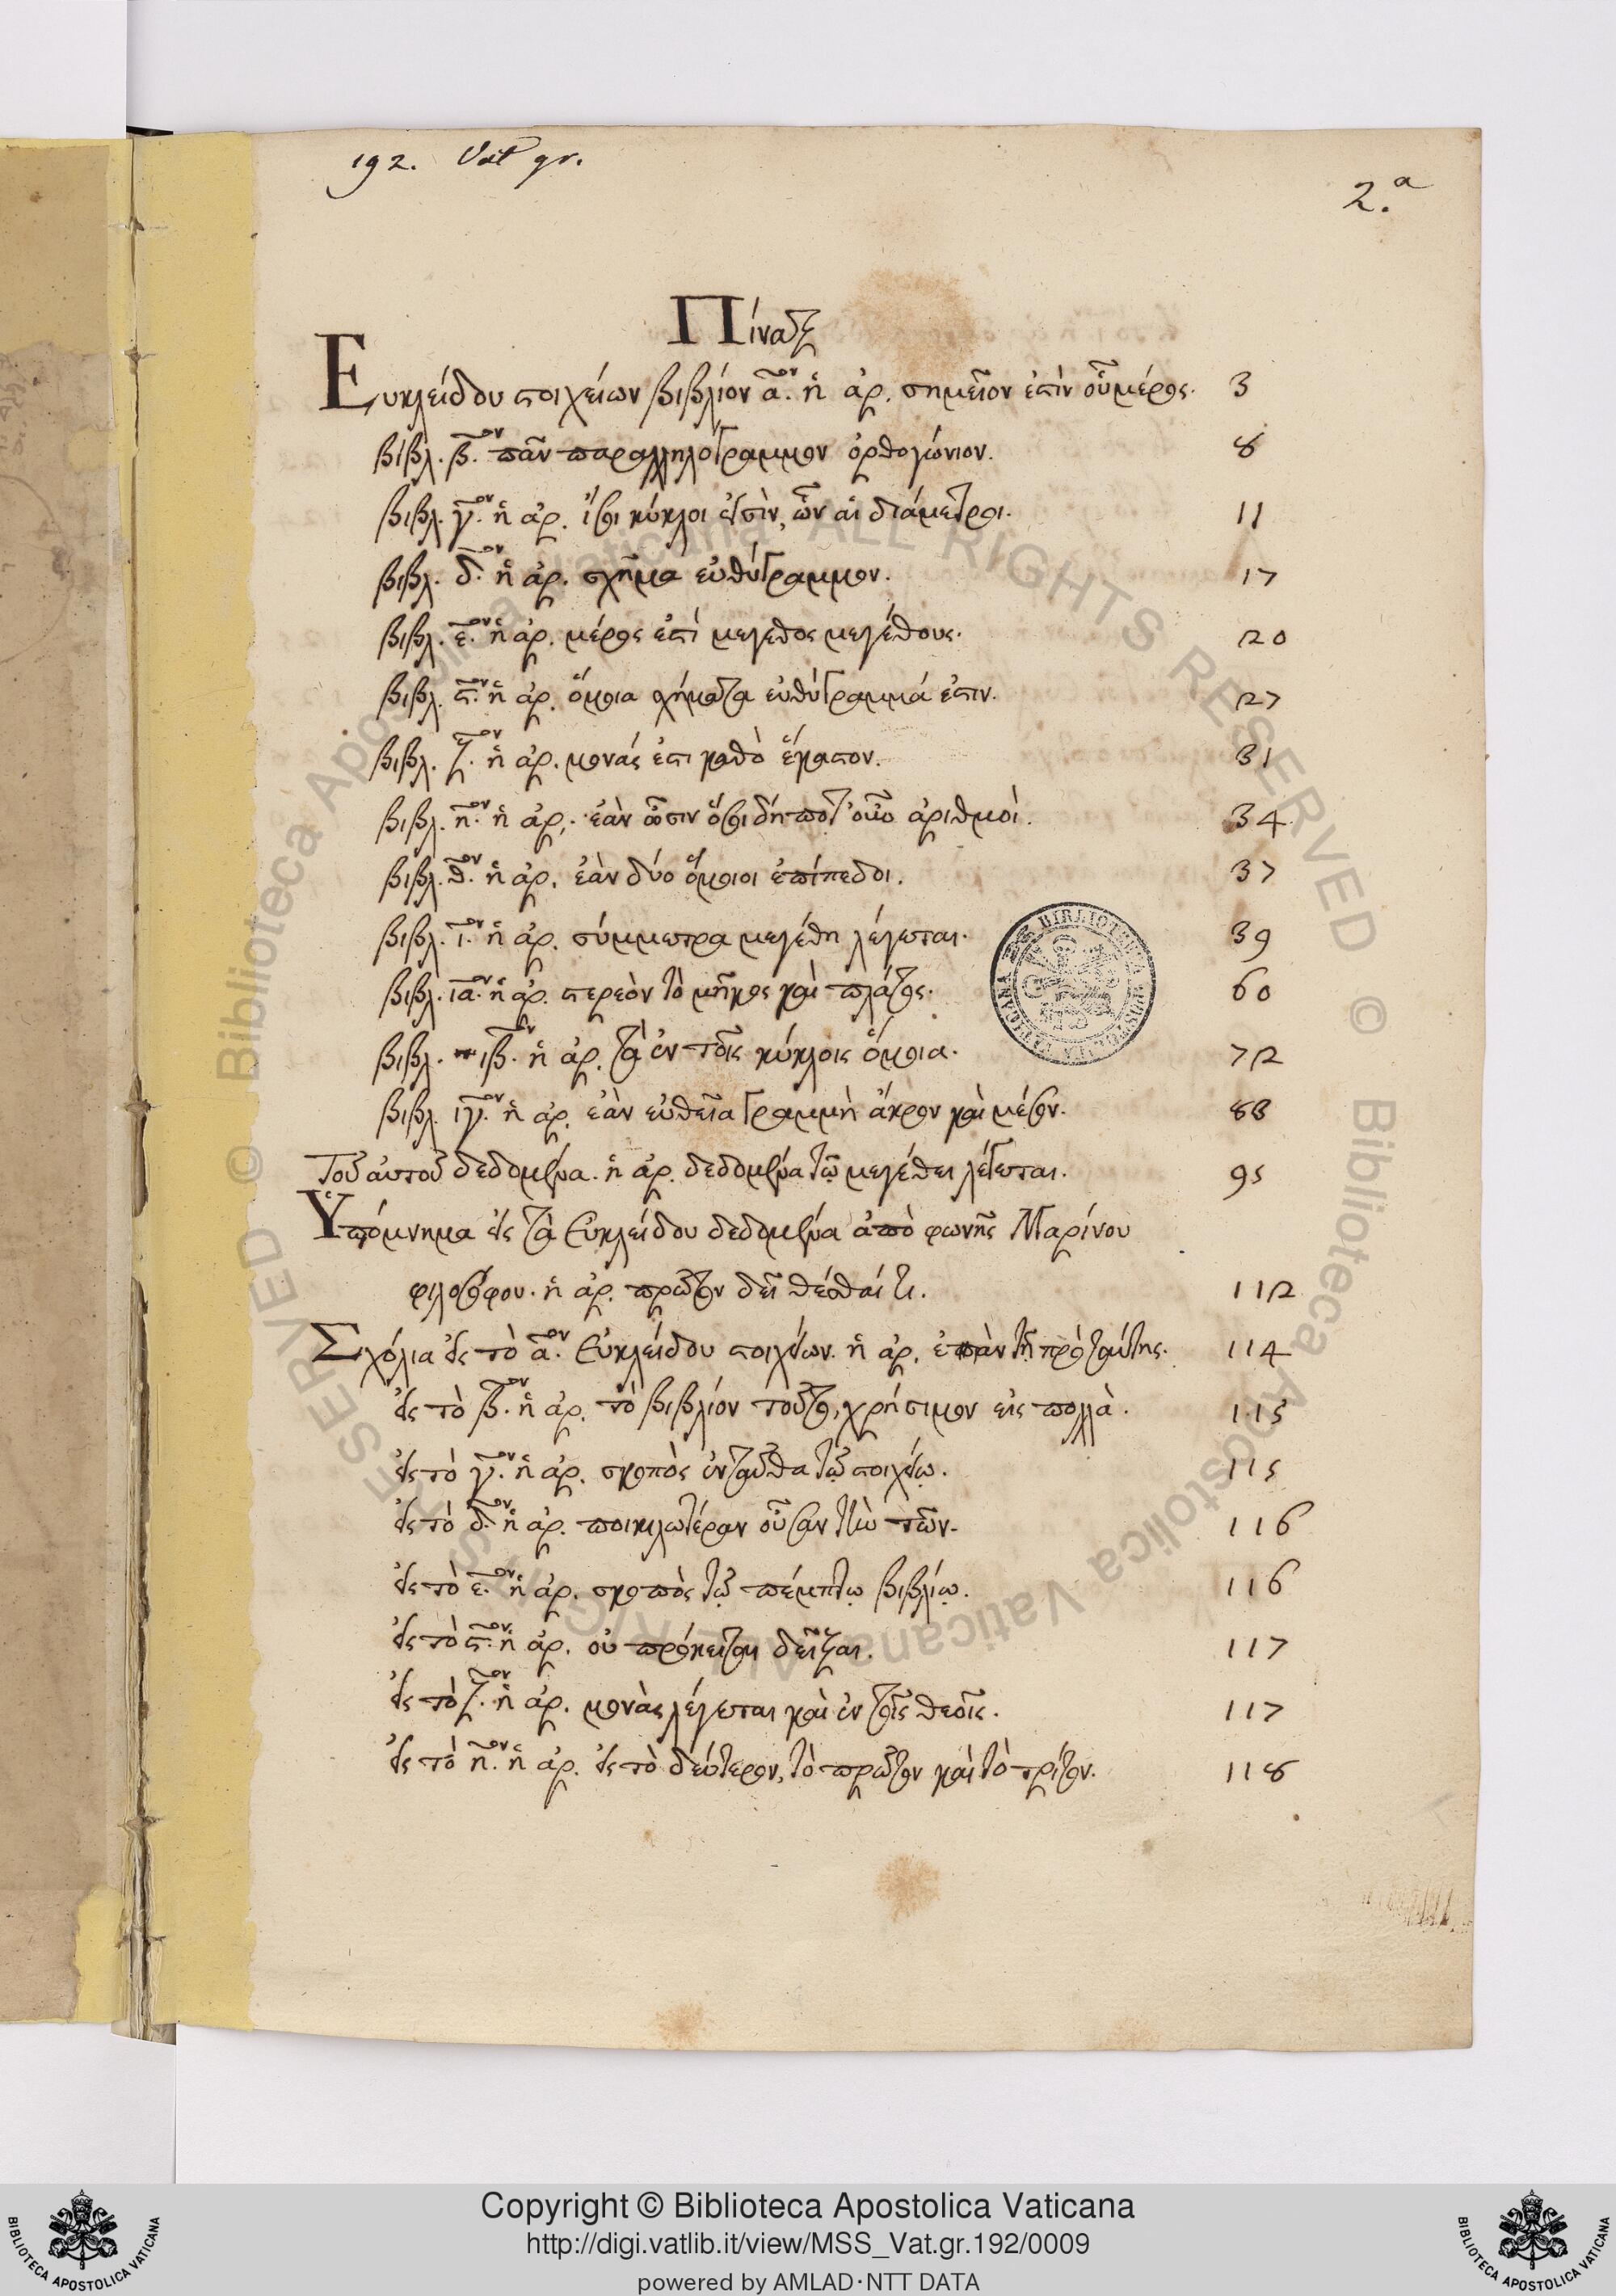 192. Vat gr.
2.ª
Πίναξ
Εὐκλείδου στοιχείων βιβλίον α.ον ἡ ἀρ. σημεῖον ἐστὶν οὗ μέρος. 3
βιβλ. β.ον πᾶν παραλληλόγραμμον ὀρθογώνιον. 8
βιβλ. γ.ον ἡ ἀρ. ἴσοι κύκλοι εἰσὶν, ὧν αἱ διάμετροι. 11
βιβλ. δ.ον ἡ ἀρ. σχῆμα εὐθύγραμμον. 17
βιβλ. ε.ον ἡ ἀρ. μέρος ἐστί μεγεθος μεγέθους. 20
βιβλ. ϛ.ον ἡ ἀρ. ὅμοια σχήματα εὐθύγραμμά ἐστιν. 27
βιβλ. ζ.ον ἡ ἀρ. μονάς ἐστι καθὸ ἕκαστον. 31
βιβλ. η.ον ἡ ἀρ. ἐὰν ὦσιν ὅσοι δήποτ' οὖν ἀριθμοὶ. 34
βιβλ. θ.ον ἡ ἀρ. ἐὰν δύο ὅμοιοι ἐπίπεδοι. 37
βιβλ. ι.ον ἡ ἀρ. σύμμετρα μεγέθη λέγεται. 39
βιβλ. ια.ον ἡ ἀρ. στερεὸν τὸ μῆκος καὶ πλάτος. 60
βιβλ. ιβ.ον ἡ ἀρ. τὰ ἐν τοῖς κύκλοις ὅμοια. 72
βιβλ. ιγ.ον ἡ ἀρ. ἐὰν εὐθεῖα γραμμὴ ἄκρον καὶ μέσον. 88
Τοῦ αὐτοῦ δεδομένα. ἡ ἀρ. δεδομένα τῷ μεγέθει λέγεται. 95
Ὑπόμνημα εἰς τὰ Εὐκλείδου δεδομένα ἀπὸ φωνῆς Μαρίνου
φιλοσόφου. ἡ ἀρ. πρῶτον δεῖ θέσθαί τι. 112
Σχόλια εἰς τὸ α.ον Εὐκλείδου στοιχείων. ἡ ἀρ. ἐπὰν τῇ πρὸ ταύτης. 114
εἰς τὸ β.ον ἡ ἀρ. τὸ βιβλίον τοῦτο, χρήσιμον εἰς πολλὰ. 115
εἰς τὸ γ.ον ἡ ἀρ. σκοπὸς ἐνταῦθα τῷ στοιχείῳ. 115
εἰς τὸ δ.ον ἡ ἀρ. ποικιλωτέραν οὖσαν τὴν τῶν. 116
εἰς τὸ ε.ον ἡ ἀρ. σκοπὸς τῷ πέμπτῳ βιβλίῳ. 116
εἰς τὸ ϛ.ον ἡ ἀρ. οὐ πρόκειται δεῖξαι. 117
εἰς τὸ ζ.ον ἡ ἀρ. μονὰς λέγεται καὶ ἐν τοῖς θεοῖς. 117
εἰς τὸ η.ον ἡ ἀρ. εἰς τὸ δεύτερον, τὸ πρῶτον καὶ τὸ τρίτον. 118
Copyright © Biblioteca Apostolica Vaticana
http://digi.vatlib.it/view/MSS_Vat.gr.192/0009
powered by AMLAD·NTT DATA
BIBLIOTECA APOSTOLICA VATICANA
BIBLIOTECA APOSTOLICA VATICANA